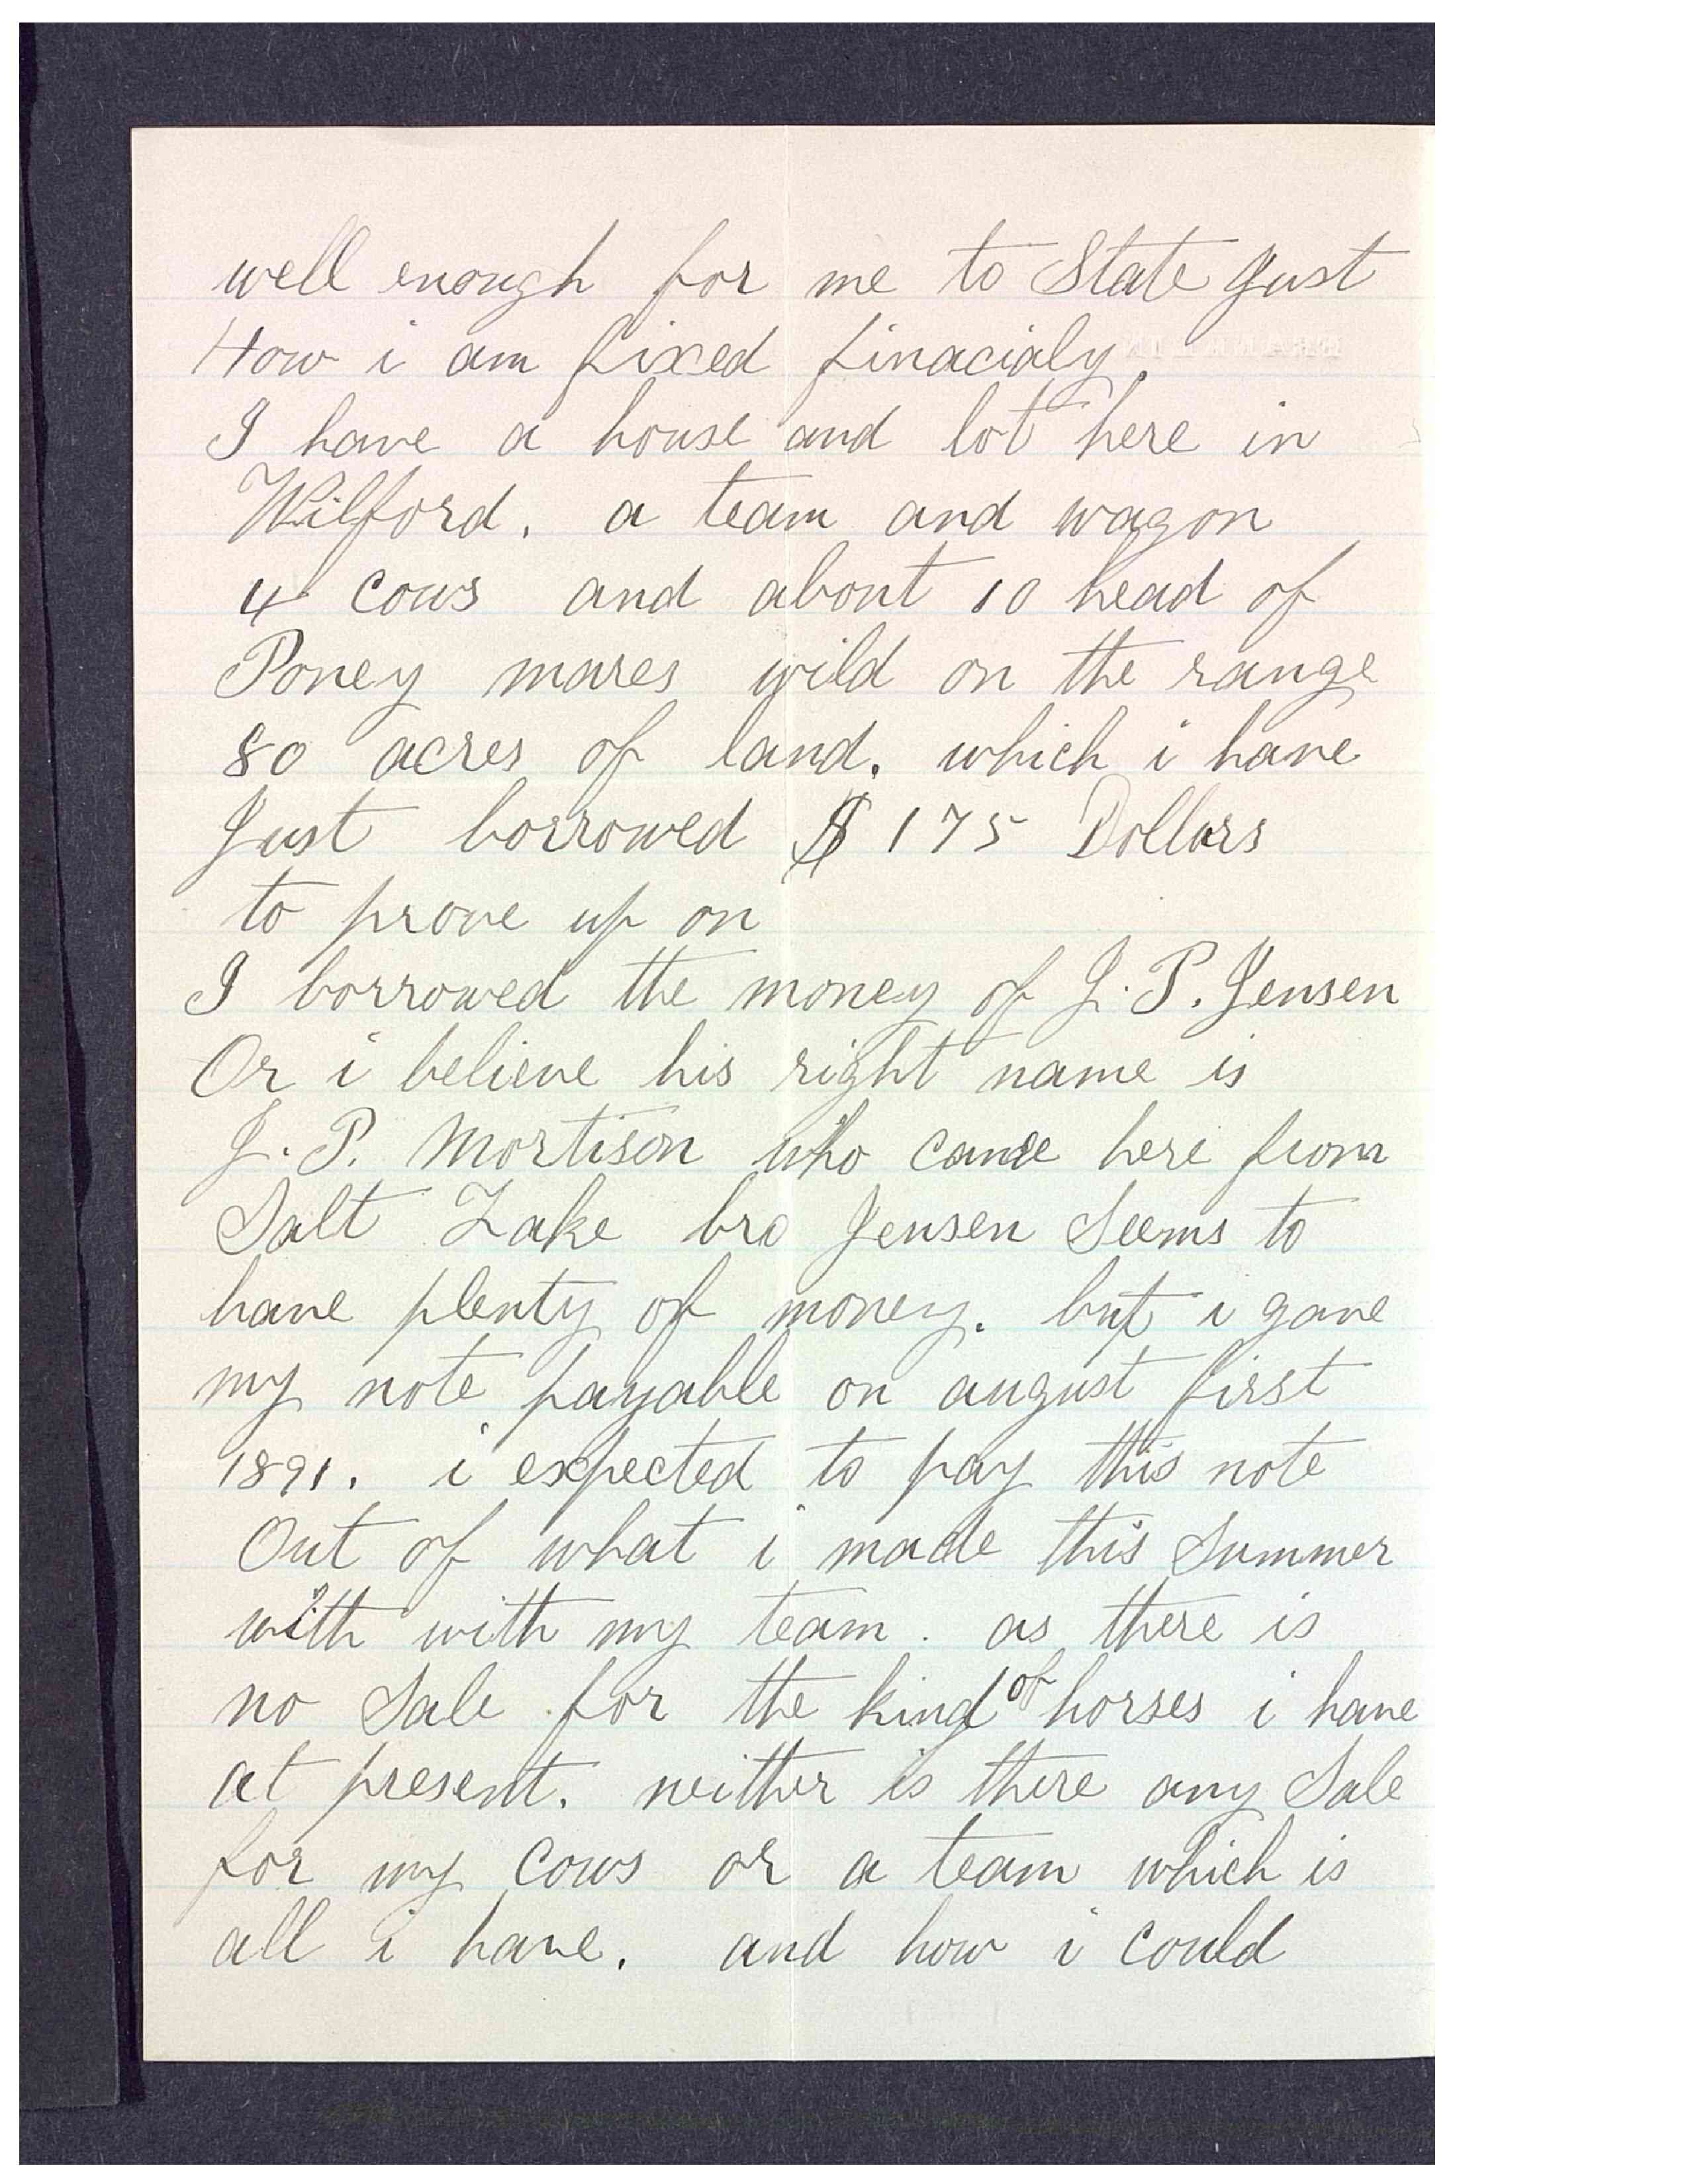 well enough for me to State Just
How i am fixed finacialy.
I have a house and lot here in
Wilford. a team and wagon
4 Cows and about 10 head of
Poney mares wild on the range
80 acres of land. which i have
Just borrowed $ 175 Dollars
to prove up on
I borrowed the money of J. P. Jensen
Or i believe his right name is
J. P. Mortison who came here from
Salt Lake bro Jensen Seems to
have plenty of money. but i gave
my note payable on august first
1891. i expected to pay this note
Out of what i made this Summer
with with my team. as there is
no Sale for the kind of horses i have
at present. neither is there any Sale
for my Cows or a team which is
all i have. and how i could